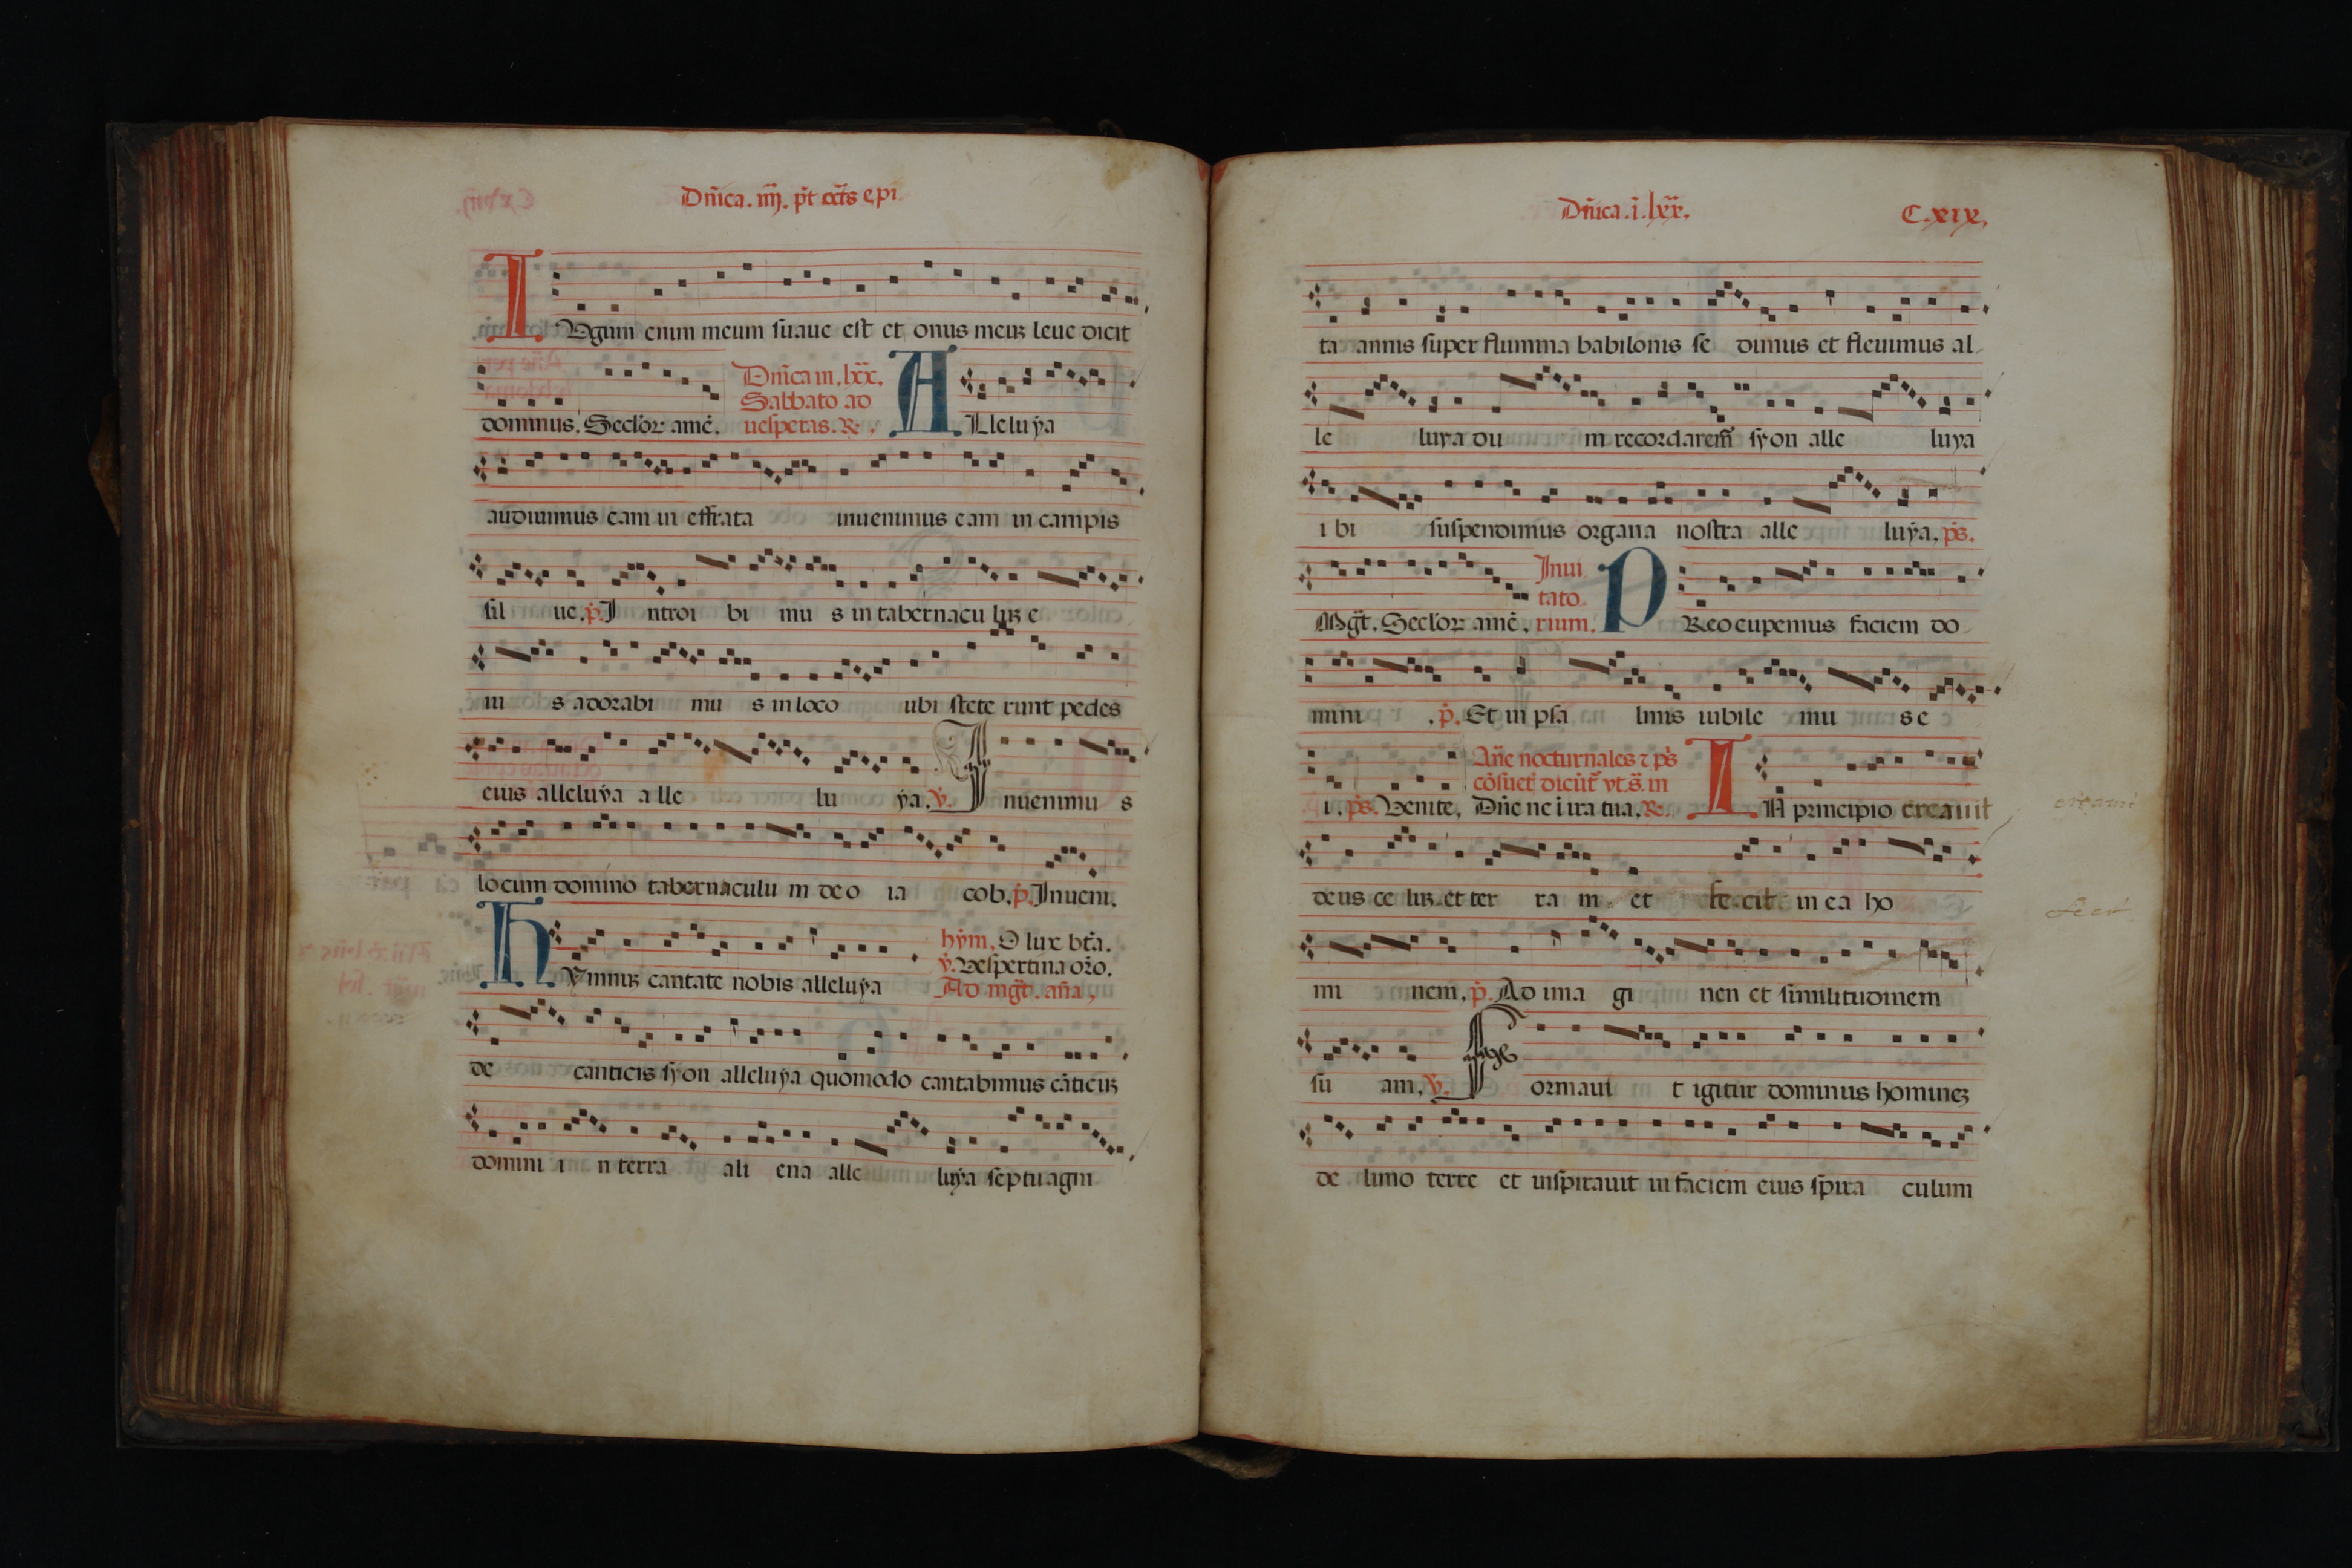 Dñica. iiij. pt̃ oct̃s epi.
IVgum enim meum suaue est et onus meuʒ leue dicit
dominus. Seclor̃ amẽ.
Dñica in. lxx̃.
Sabbato ad
uesperas. R.
ALleluya
audiuimus eam in effrata inuenimus eam in campis
sil ue. p̃. Introi bi mu s in tabernacu luʒ e
iu s adorabi mu s in loco ubi stete runt pedes
eius alleluya alle lu ya. ṽ. Inuenimu s
locum domino tabernaculu m deo ia cob. p̃. Inueni.
HYmnuʒ cantate nobis alleluya
hym. O lux bt̃a.
ṽ. Vespertina or̃o.
Ad mgt̃. aña,
de canticis syon alleluya quomodo cantabimus cãticuʒ
domini i n terra ali ena alle luya septuagin
Dñica. ĩ. lxx̃.
C. xix.
ta annis super flumina babilonis se dimus et fleuimus al
le luya du m recordarem̃ syon alle luya
i bi suspendimus organa nostra alle luya. ps̃.
Mgt̃. Seclor̃ amẽ.
Inui
tato
rium.
PReocupemus faciem do
mini . p̃. Et in psa lmis iubile mu s e
i. ps̃. Venite. Dñe ne i ira tua. R.
Añe nocturnales ⁊ ps̃
cõsuet̃ dicũt̃ vt. s̃. in
IN principio creauit
creauit
deus ce luʒ et ter ra m et fe cit in ea ho
fecit
mi nem. p̃. Ad ima gi nen et similitudinem
su am. ṽ. Formaui t igitur dominus homineʒ
de limo terre et inspirauit in faciem eius spira culum